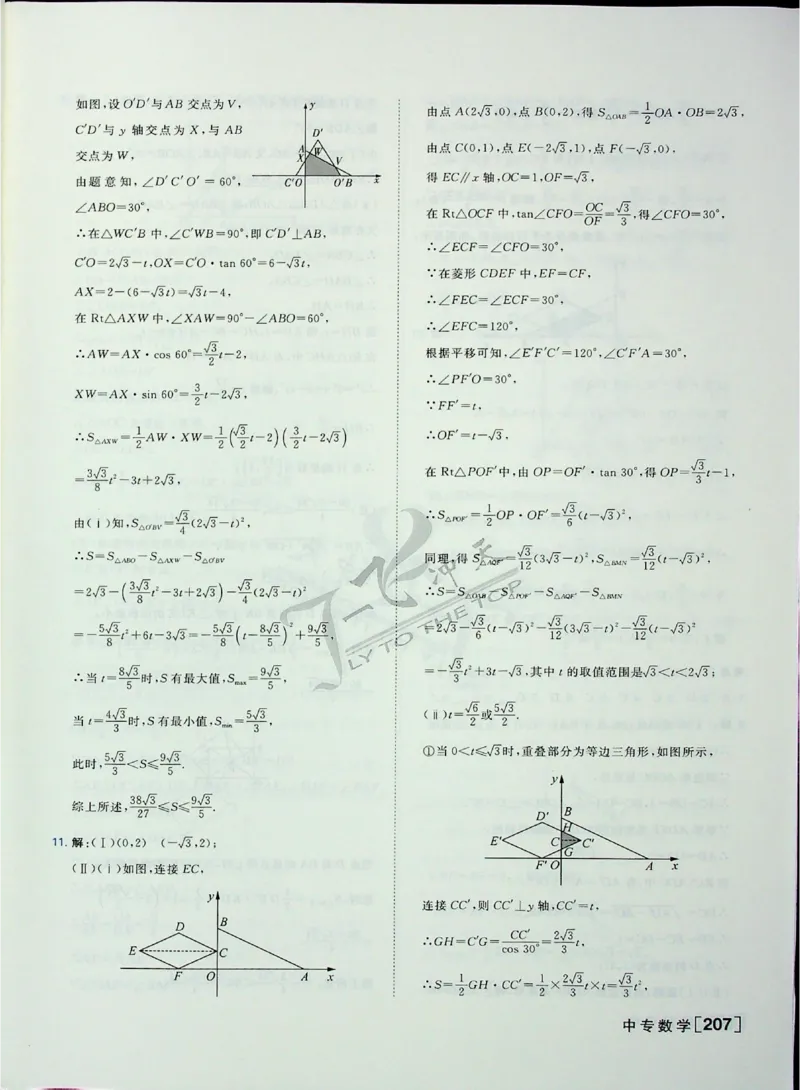 如图,设 O′D′与 AB 交点为 V,
C′D′与 y 轴交点为 X,与 AB
交点为 W,
由题意知,∠D′C′O′=60°,
∠ABO=30°,
y
D′
A
W
X
V
C′O
O′B
x
∴在△WC′B 中,∠C′WB=90°,即 C′D′⊥AB,
C′O=2√3-t,OX=C′O·tan 60°=6-√3t,
AX=2-(6-√3t)=√3t-4,
在 Rt△AXW 中,∠XAW=90°-∠ABO=60°,
∴AW=AX·cos 60°=√3/2 t-2,
XW=AX·sin 60°=3/2 t-2√3,
∴S△AXW=1/2 AW·XW=1/2(√3/2 t-2)(3/2 t-2√3)
=3√3/8 t²-3t+2√3,
由(ⅰ)知,S△O′BV=√3/4(2√3-t)²,
∴S=S△ABO-S△AXW-S△O′BV
=2√3-(3√3/8 t²-3t+2√3)-√3/4(2√3-t)²
=-5√3/8 t²+6t-3√3=-5√3/8(t-8√3/5)²+9√3/5,
∴当 t=8√3/5时,S 有最大值,Smax=9√3/5,
当 t=4√3/3时,S 有最小值,Smin=5√3/3,
此时,5√3/3<S≤9√3/5.
综上所述,38√3/27≤S≤9√3/5.
11. 解:(Ⅰ)(0,2) (-√3,2);
(Ⅱ)(ⅰ)如图,连接 EC,
y
D
B
E
C
F
O
A
x
由点 A(2√3,0),点 B(0,2),得 S△OAB=1/2 OA·OB=2√3,
由点 C(0,1),点 E(-2√3,1),点 F(-√3,0),
得 EC∥x 轴,OC=1,OF=√3,
在 Rt△OCF 中,tan∠CFO=OC/OF=√3/3,得∠CFO=30°,
∴∠ECF=∠CFO=30°,
∵在菱形 CDEF 中,EF=CF,
∴∠FEC=∠ECF=30°,
∴∠EFC=120°,
根据平移可知,∠E′F′C′=120°,∠C′F′A=30°,
∴∠PF′O=30°,
∵FF′=t,
∴OF′=t-√3,
在 Rt△POF′中,由 OP=OF′·tan 30°,得 OP=√3/3 t-1,
∴S△POF′=1/2 OP·OF′=√3/6(t-√3)²,
同理,得 S△AQF′=√3/12(3√3-t)²,S△BMN=√3/12(t-√3)²,
∴S=S△OAB-S△POF′-S△AQF′-S△BMN
=2√3-√3/6(t-√3)²-√3/12(3√3-t)²-√3/12(t-√3)²
=-√3/3 t²+3t-√3,其中 t 的取值范围是√3<t<2√3;
(ⅱ)t=√6/2或5√3/2.
①当 0<t≤√3时,重叠部分为等边三角形,如图所示,
y
D′
B
H
E′
C
C′
G
F′
O
A
x
连接 CC′,则 CC′⊥y 轴,CC′=t,
∴GH=C′G=CC′/cos 30°=2√3/3 t,
∴S=1/2 GH·CC′=1/2×2√3/3 t×t=√3/3 t²,
一飞冲天
FLY TO THE TOP
中专数学[207]